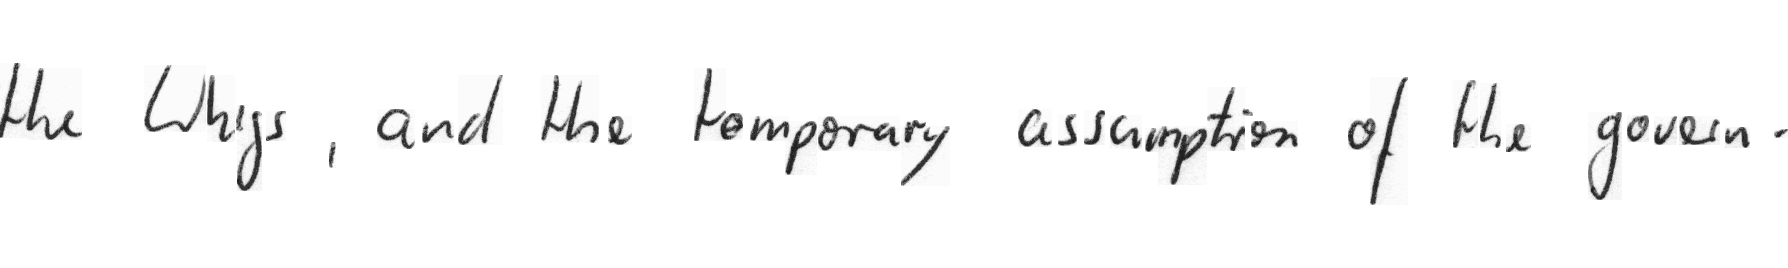 the Whigs, and the temporary assumption of the govern-